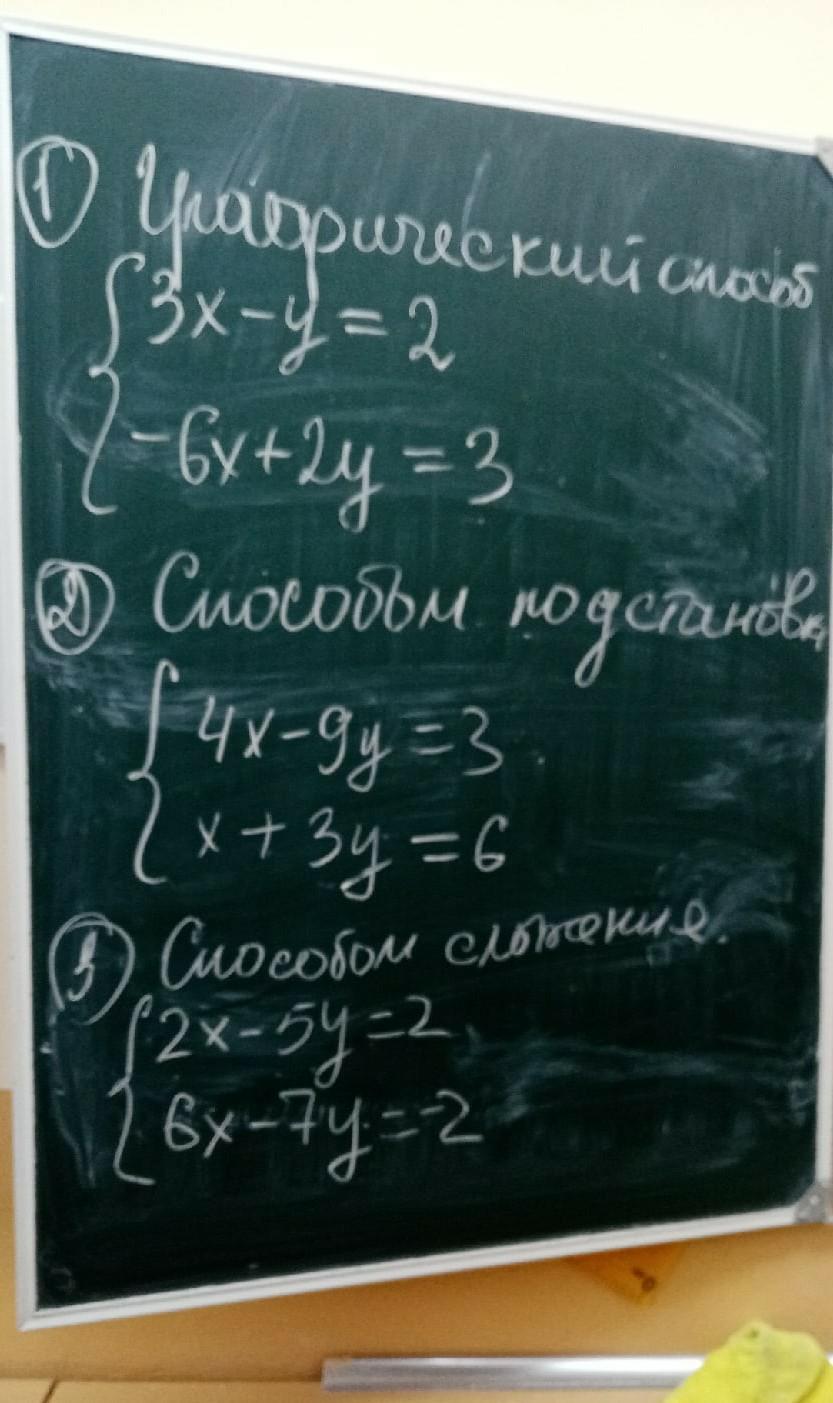 1 Графический способ
3x-y=2
-6x+2y=3
2 Способом подстановк
4x-9y=3
x+3y=6
3 Способом сложения.
2x-5y=2
6x-7y=-2